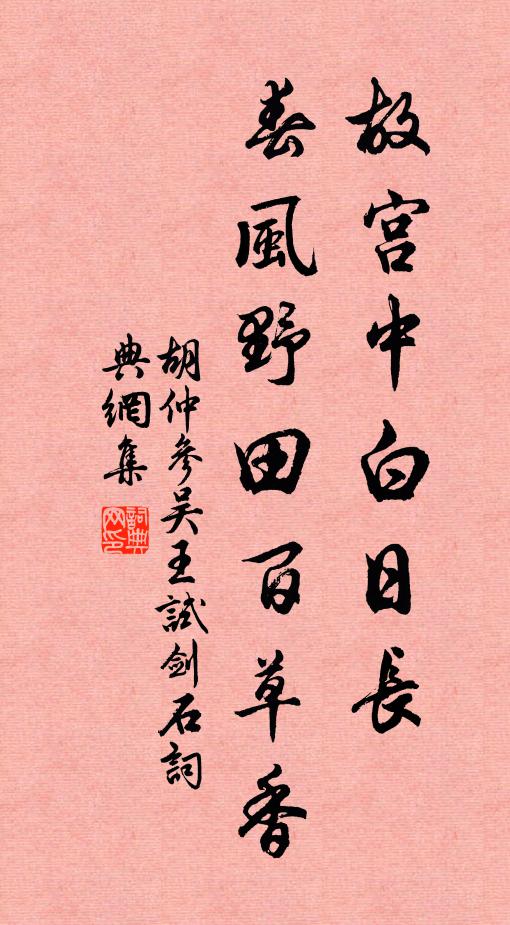 故宮中白日長
春風野田百草香
胡仲參吳王試劍石詞
典網集
詞典網印